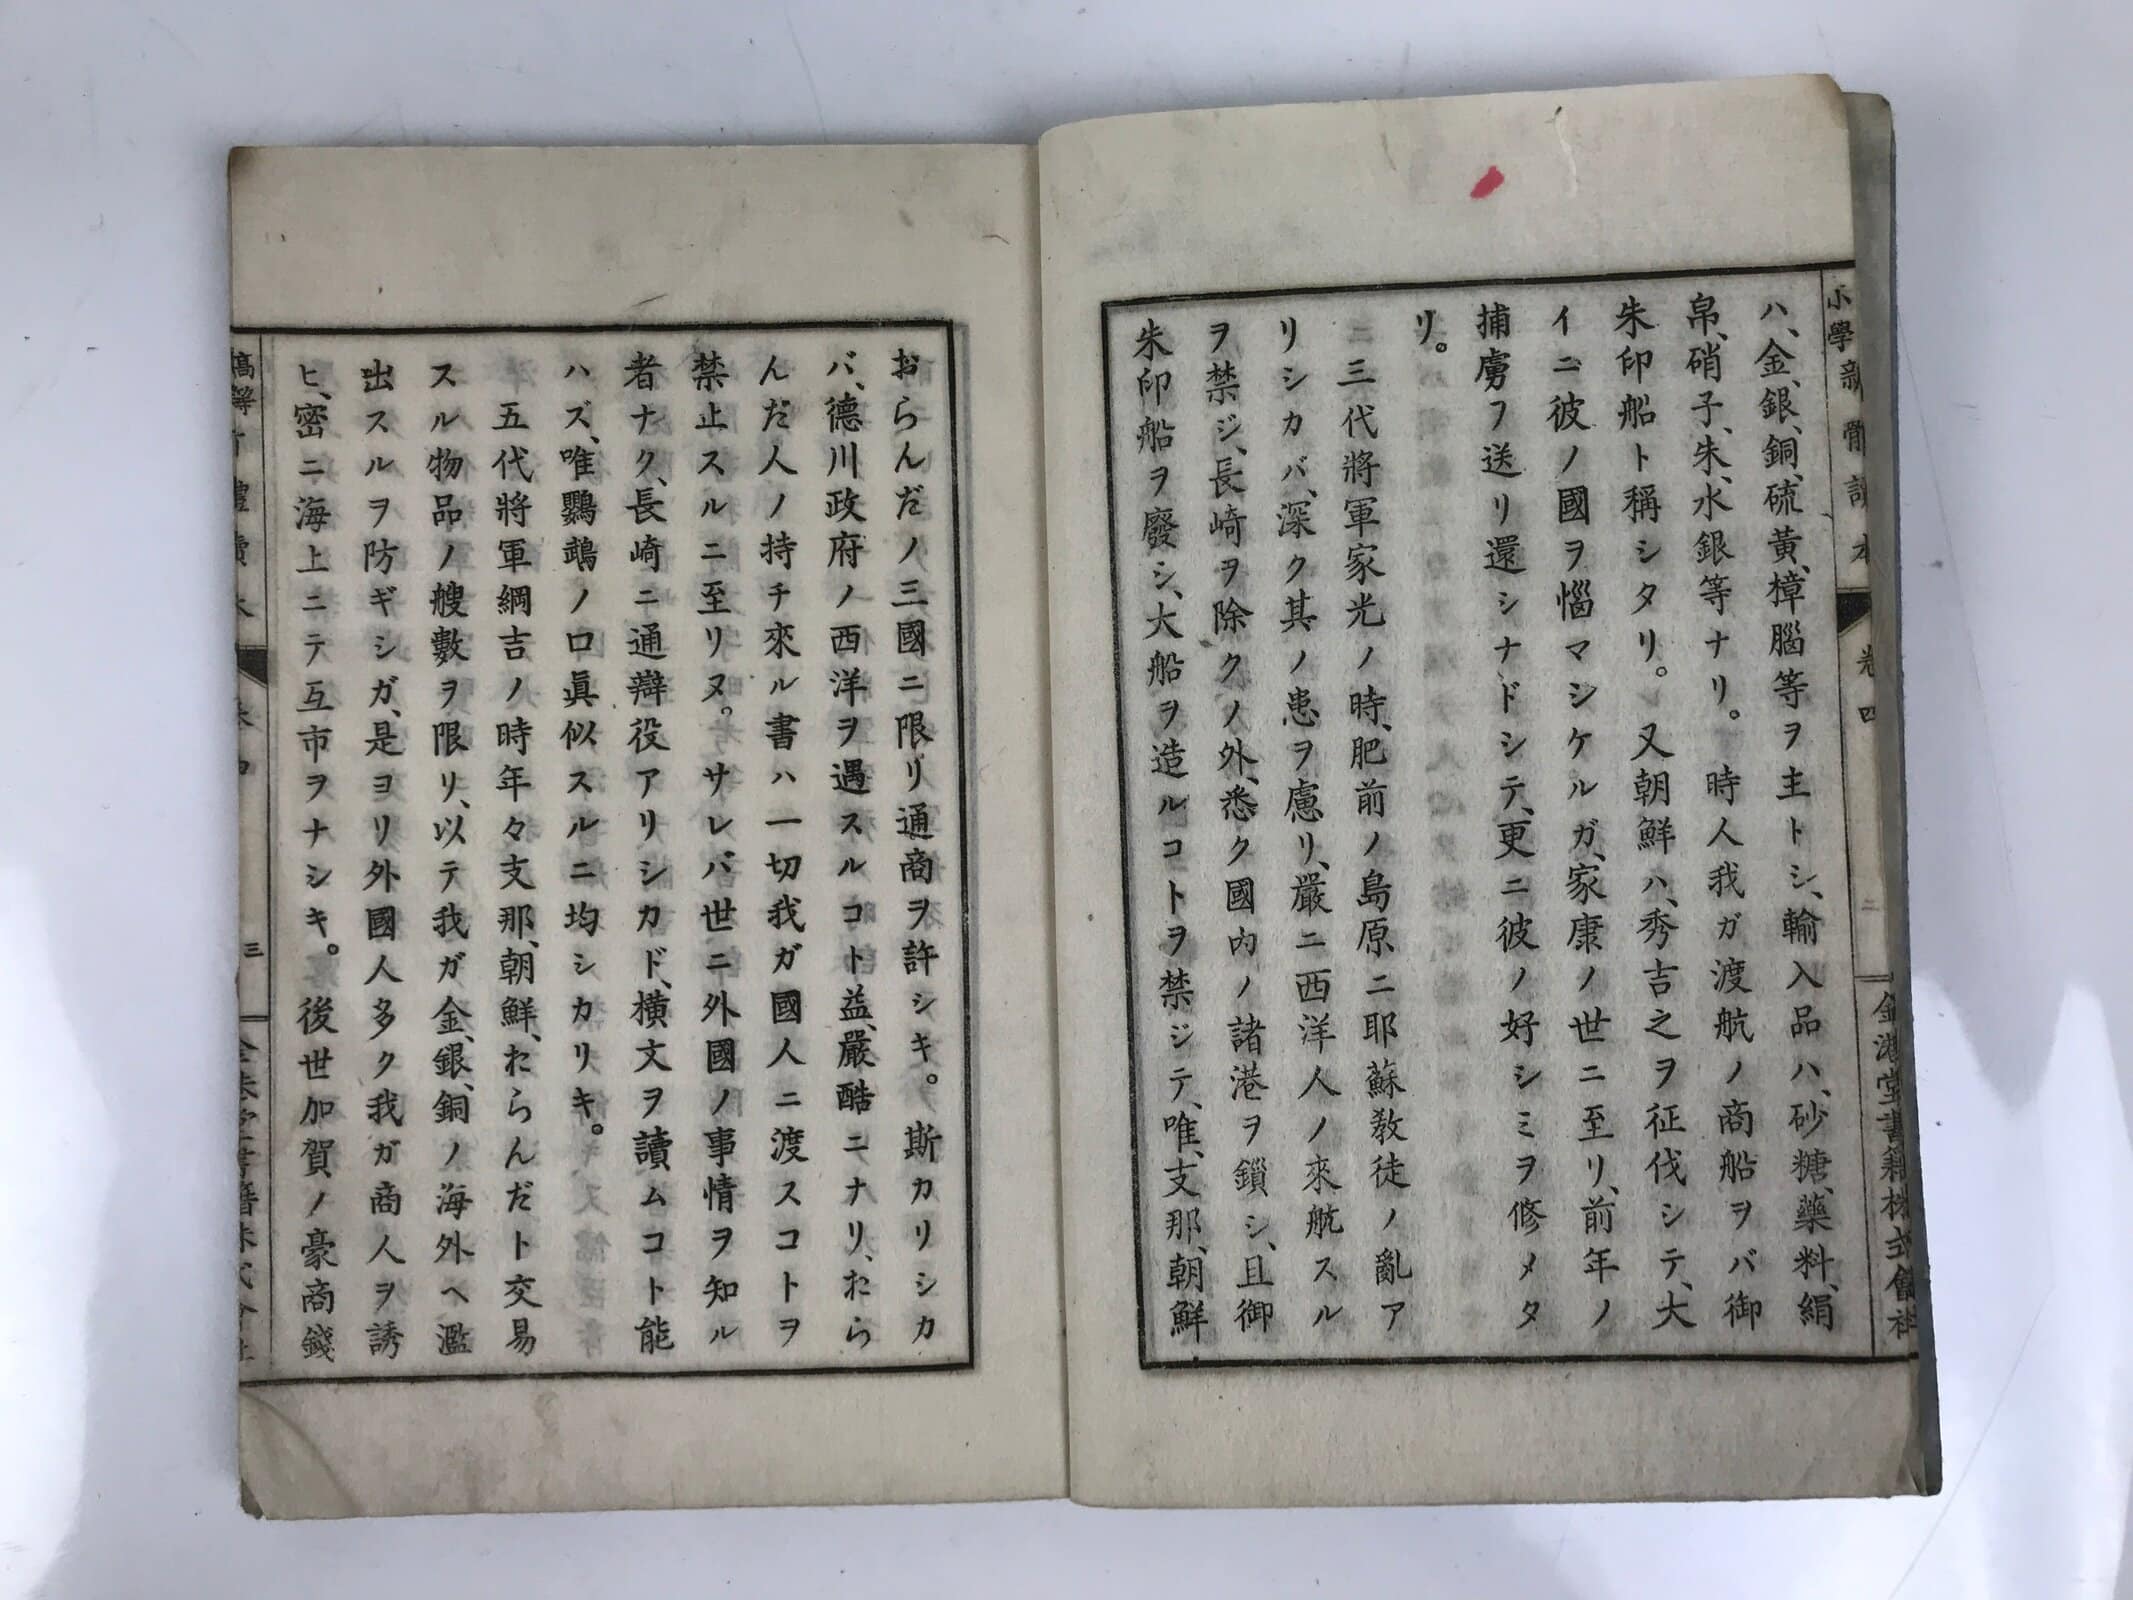 小學新體讀本
卷四
二
金港堂書籍株式會社
ハ、金、銀、銅、硫黃、樟腦等ヲ主トシ、輸入品ハ、砂糖、藥料、絹
帛、硝子、朱、水銀等ナリ。時人我ガ渡航ノ商船ヲバ御
朱印船ト稱シタリ。又朝鮮ハ、秀吉之ヲ征伐シテ、大
イニ彼ノ國ヲ惱マシケルガ、家康ノ世ニ至リ、前年ノ
捕虜ヲ送リ還シナドシテ、更ニ彼ノ好シミヲ修メタ
リ。
三代將軍家光ノ時、肥前ノ島原ニ耶蘇教徒ノ亂ア
リシカバ、深ク其ノ患ヲ慮リ、嚴ニ西洋人ノ來航スル
ヲ禁ジ、長崎ヲ除クノ外、悉ク國內ノ諸港ヲ鎖シ、且御
朱印船ヲ廢シ、大船ヲ造ルコトヲ禁ジテ、唯、支那、朝鮮、
おらんだノ三國ニ限リ通商ヲ許シキ。斯カリシカ
バ、德川政府ノ西洋ヲ遇スルコト益、嚴酷ニナリ、おら
んだ人ノ持チ來ル書ハ一切我ガ國人ニ渡スコトヲ
禁止スルニ至リヌ。サレバ世ニ外國ノ事情ヲ知ル
者ナク、長崎ニ通辯役アリシカド、橫文ヲ讀ムコト能
ハズ、唯鸚鵡ノ口眞似スルニ均シカリキ。
五代將軍綱吉ノ時年々支那、朝鮮、おらんだト交易
スル物品ノ艘數ヲ限リ、以テ我ガ金、銀、銅ノ海外ヘ濫
出スルヲ防ギシガ、是ヨリ外國人多ク我ガ商人ヲ誘
ヒ、密ニ海上ニテ互市ヲナシキ。後世加賀ノ豪商錢
三